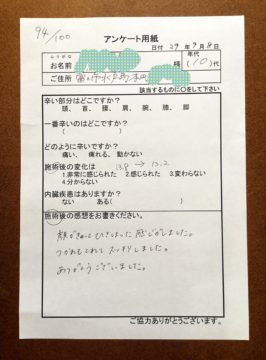 94/100
アンケート用紙
日付 29年9月8日
ふりがな
お名前
様
年代
(10)代
ご住所
該当するものに○をして下さい
辛い部分はどこですか?
頭、首、腰、肩、腕、膝、脚
一番辛いのはどこですか?
( )
どのように辛いですか?
痛い、痺れる、動かない
施術後の変化は 13.8 → 13.2
1.非常に感じられた 2.感じられた 3.変わらない
4.分からない
内臓疾患はありますか?
ない ある( )
施術後の感想をお書きください。
顔がきゅっとひきしまった感じがしました。
つかれもとれてスッキリしました。
ありがとうございました。
ご協力ありがとうございます。